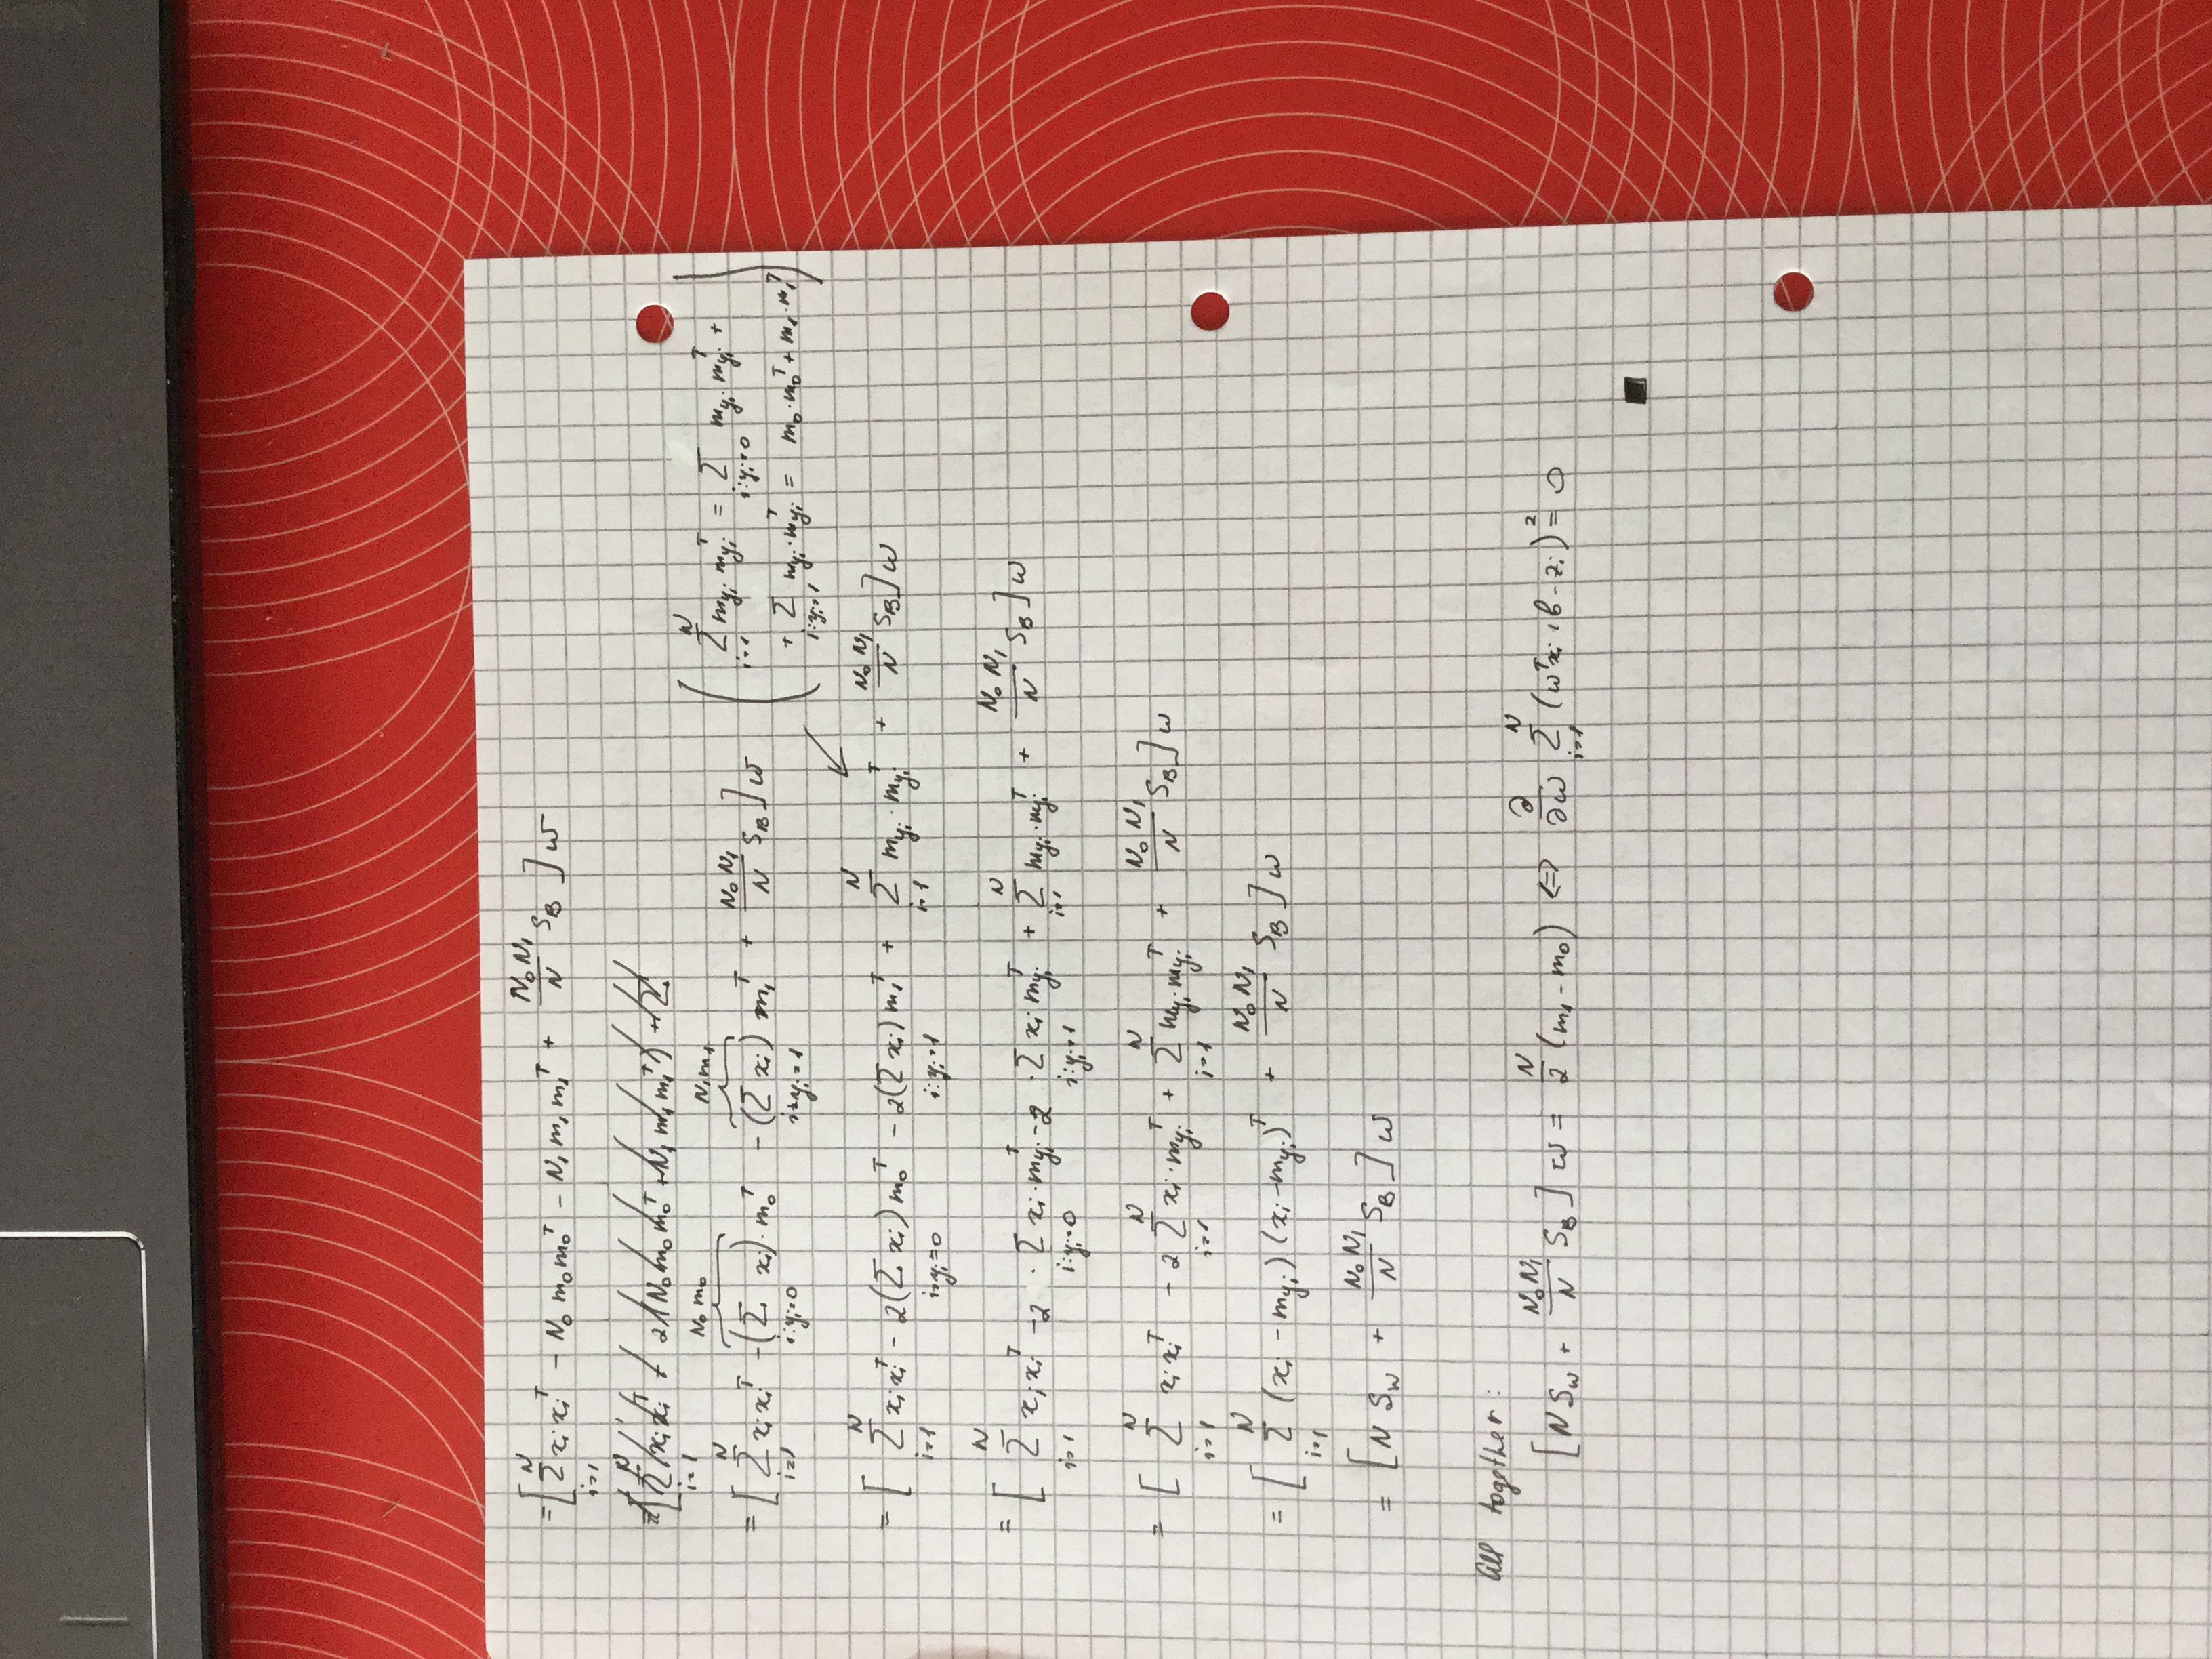 = [ \sum_{i=1}^{N} x_i x_i^T - N_0 m_0 m_0^T - N_1 m_1 m_1^T + \frac{N_0 N_1}{N} S_B ] w
= [ \sum_{i=1}^{N} x_i x_i^T - 2 ( N_0 m_0 m_0^T + N_1 m_1 m_1^T ) + \sum
= [ \sum_{i=1}^{N} x_i x_i^T - \overbrace{( \sum_{i:y_i=0} x_i )}^{N_0 m_0} \cdot m_0^T - \overbrace{( \sum_{i:y_i=1} x_i )}^{N_1 m_1} m_1^T + \frac{N_0 N_1}{N} S_B ] w
( \sum_{i=1}^{N} m_{y_i} m_{y_i}^T = \sum_{i:y_i=0} m_{y_i} m_{y_i}^T +
+ \sum_{i:y_i=1} m_{y_i} \cdot m_{y_i}^T = m_0 \cdot m_0^T + m_1 \cdot m_1^T )
= [ \sum_{i=1}^{N} x_i x_i^T - 2 ( \sum_{i:y_i=0} x_i ) m_0^T - 2 ( \sum_{i:y_i=1} x_i ) m_1^T + \sum_{i=1}^{N} m_{y_i} \cdot m_{y_i}^T + \frac{N_0 N_1}{N} S_B ] w
= [ \sum_{i=1}^{N} x_i x_i^T - 2 \cdot \sum_{i:y_i=0} x_i \cdot m_{y_i}^T - 2 \cdot \sum_{i:y_i=1} x_i m_{y_i}^T + \sum_{i=1}^{N} m_{y_i} \cdot m_{y_i}^T + \frac{N_0 N_1}{N} S_B ] w
= [ \sum_{i=1}^{N} x_i x_i^T - 2 \sum_{i=1}^{N} x_i \cdot m_{y_i}^T + \sum_{i=1}^{N} m_{y_i} \cdot m_{y_i}^T + \frac{N_0 N_1}{N} S_B ] w
= [ \sum_{i=1}^{N} (x_i - m_{y_i}) (x_i - m_{y_i})^T + \frac{N_0 N_1}{N} S_B ] w
= [ N S_W + \frac{N_0 N_1}{N} S_B ] w
All together:
[ N S_W + \frac{N_0 N_1}{N} S_B ] w = \frac{N}{2} (m_1 - m_0) \Leftrightarrow \frac{\partial}{\partial w} \sum_{i=1}^{N} (w^T x_i + b - z_i)^2 = 0